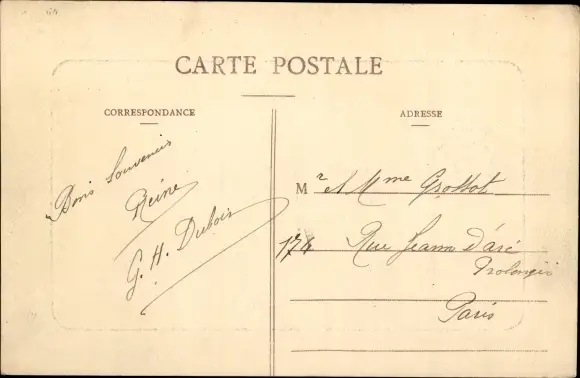 CARTE POSTALE
CORRESPONDANCE
ADRESSE
Bons Souvenirs
Reine
G. H. Dubois
Mr et Mme Grottot
174 Rue Jeanne d'Arc
Prolongée
Paris